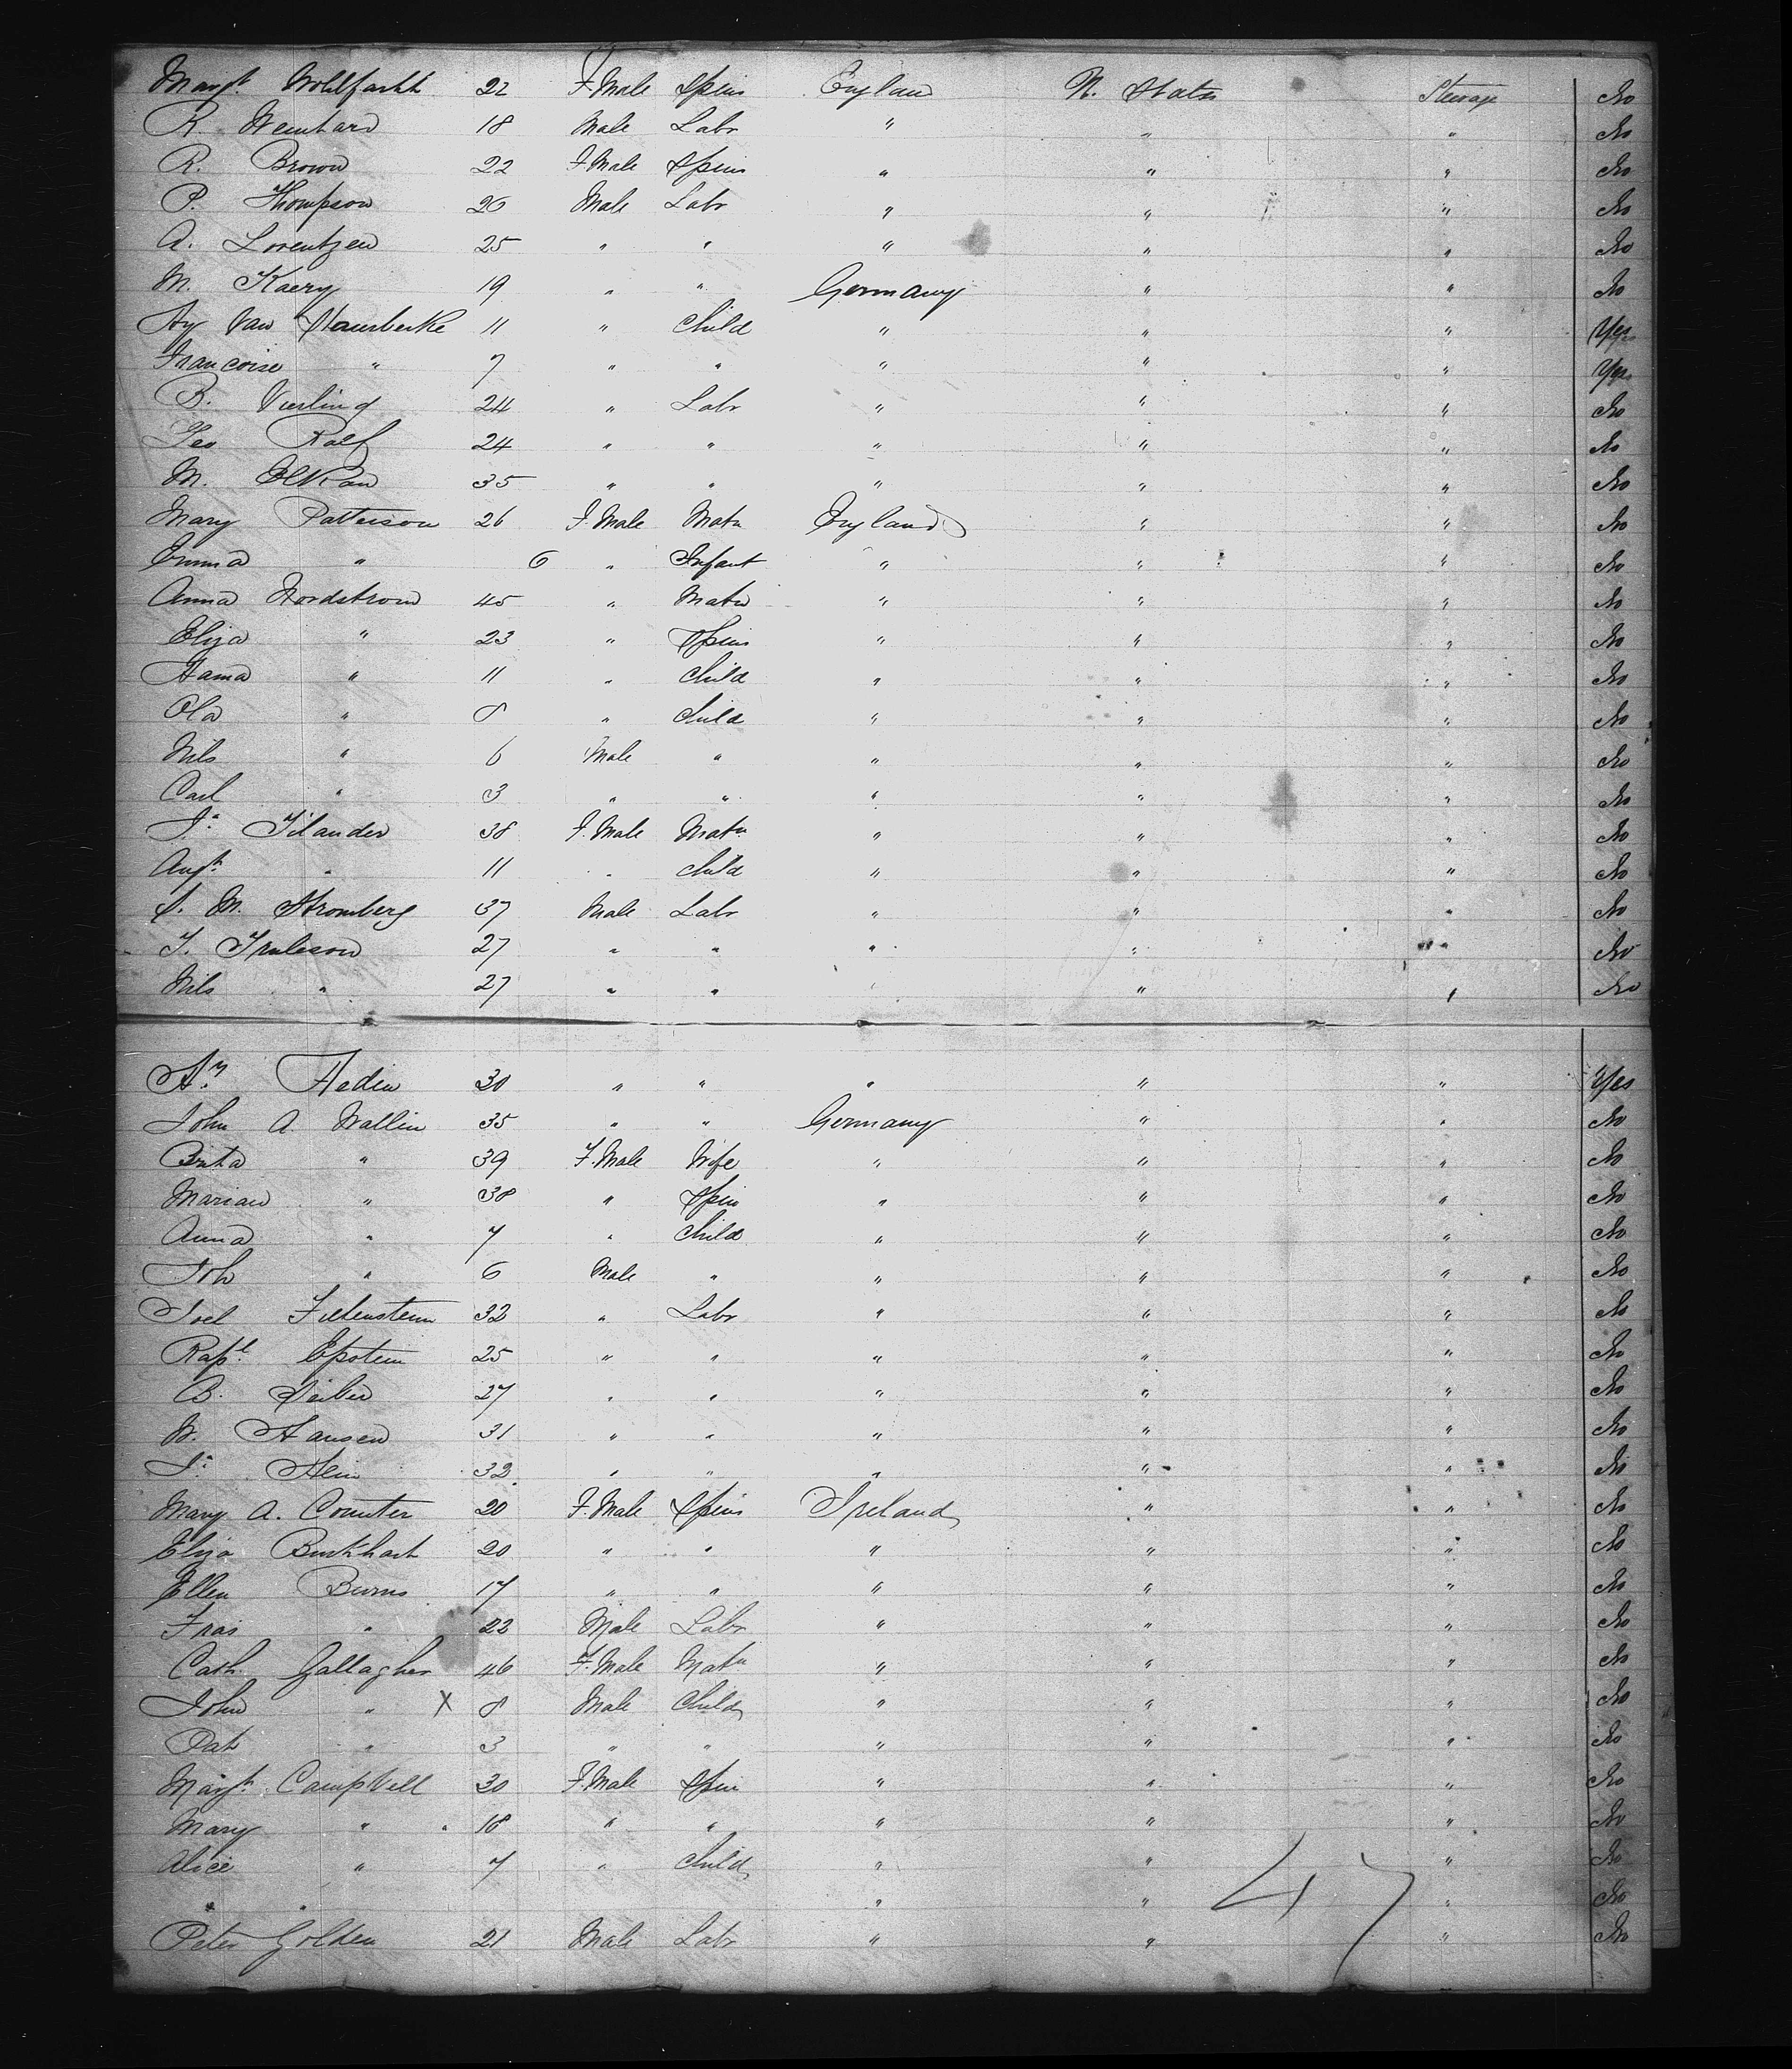 Margt. Wohlfarht 22 F.Male Spins England U. States Steerage No
R. Wemhard 18 Male Labr " " " No
R. Brown 22 F.Male Spins " " " No
P. Thompson 26 Male Labr " " " No
A. Lorentzen 25 " " " " " No
M. Kaery 19 " " Germany " " No
Hy Van 11 " Child " " " Yes
Francoise " 7 " " " " " Yes
B. Vierling 24 " Labr " " " No
Leo Ralf 24 " " " " " No
M. Elkan 35 " " " " " No
Mary Patterson 26 F.Male Matn England " " No
Emma " 6 " Infant " " " No
Anna Nordstrom 45 " Matn " " " No
Eliza " 23 " Spins " " " No
Hama " 11 " Child " " " No
Ola " 8 " Child " " " No
Nils " 6 Male " " " " No
Carl " 3 " " " " " No
Ja Tilander 38 F.Male Matn " " " No
Augt. " 11 " Child " " " No
S. M. Stromberg 37 Male Labr " " " No
T. Truleson 27 " " " " " No
Nils " 27 " " " " " No
Hedin 30 " " " " " Yes
John A. Wallin 35 " " Germany " " No
Brita " 39 F.Male Wife " " " No
Marian " 38 " Spin " " " No
Anna " 7 " Child " " " No
Joh " 6 Male " " " " No
Joel 32 " Labr " " " No
Rapl. Epstein 25 " " " " " No
B. 27 " " " " " No
N. Hansen 31 " " " " " No
Ja 32 " " " " " No
Mary A. Counter 20 F.Male Spins Ireland " " No
Eliza Burkhart 20 " " " " " No
Ellen Burns 17 " " " " " No
Fras " 22 Male Labr " " " No
Cath. Gallagher 46 F.Male Matn " " " No
John " X 8 Male Child " " " No
Pat " 3 " " " " " No
Margt. Campbell 30 F.Male Spin " " " No
Mary " 18 " " " " " No
Alice " 7 " Child " " " No
" " " " " No
Peter Golden 21 Male Labr " " " No
47